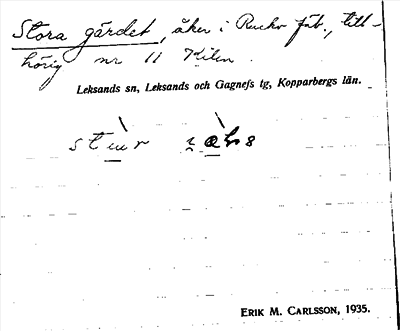 Stora gärdet, åker i Rucko fäb., till-
hörig nr 11 Kilen.
Leksands sn, Leksands och Gagnefs tg, Kopparbergs län.
ERIK M. CARLSSON, 1935.